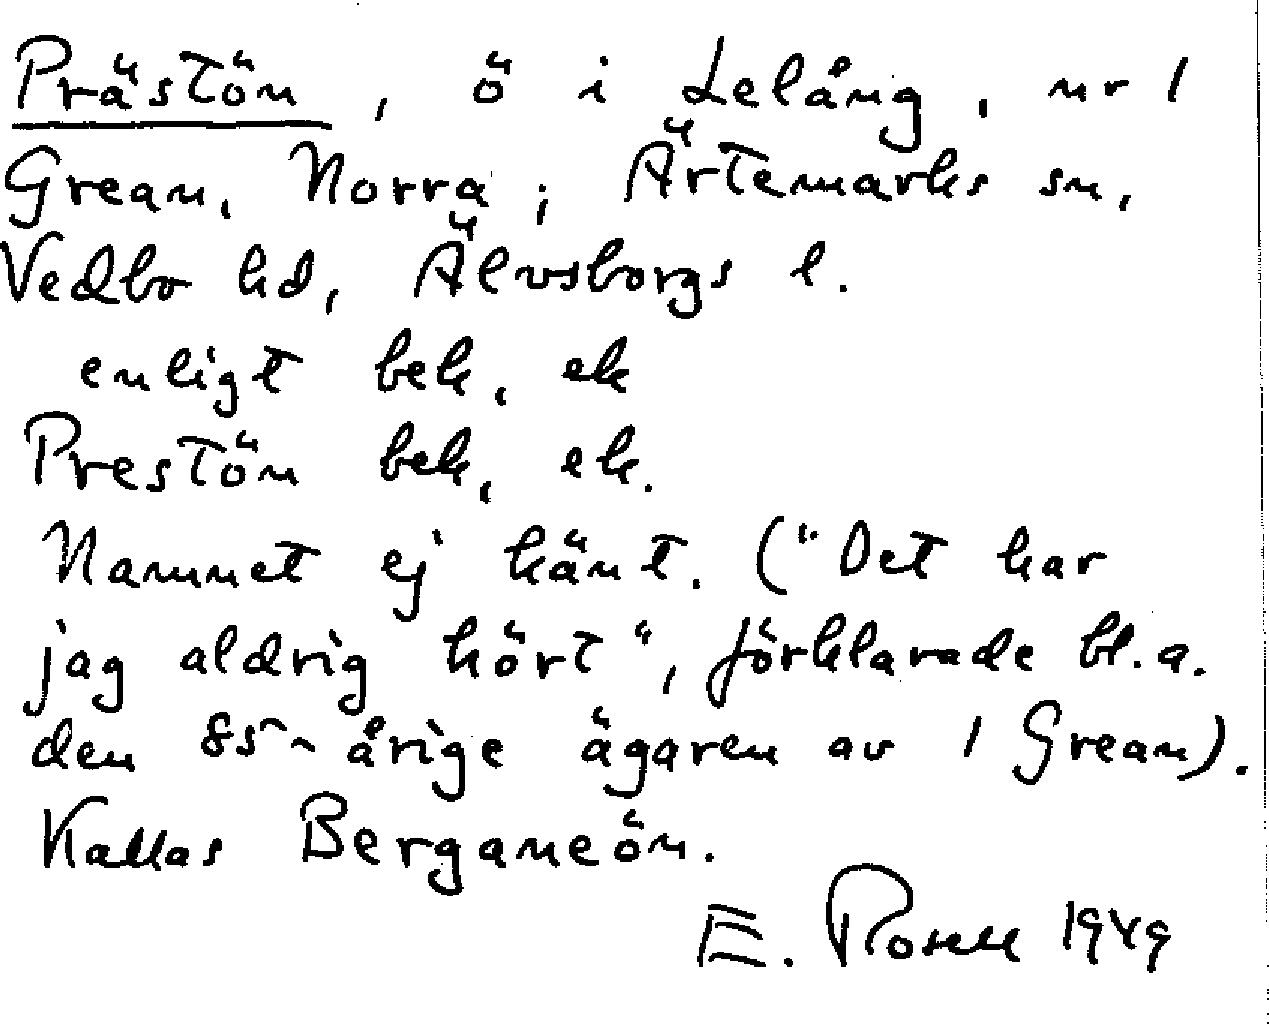 Prästön, ö i Lelång, nr 1
Grean, Norra; Ärtemarks sn,
Vedbo hd, Älvsborgs l.
enligt bek, ek
Prestön bek, ek.
Namnet ej känt. ("Det har
jag aldrig hört", förklarade bl.a.
den 85-årige ägaren av 1 Grean).
Kallas Berganeön.
E. Rosell 1949